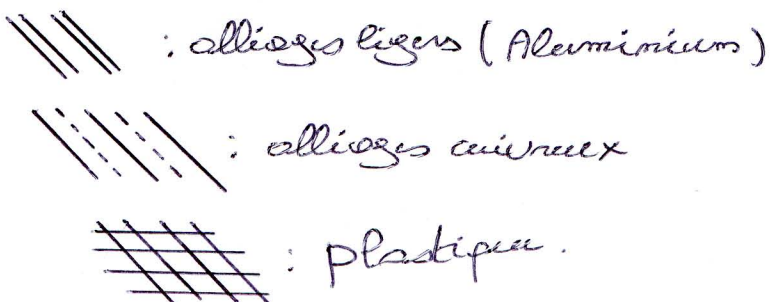 : alliages légers (Aluminium)
: alliages cuivreux
: plastique.